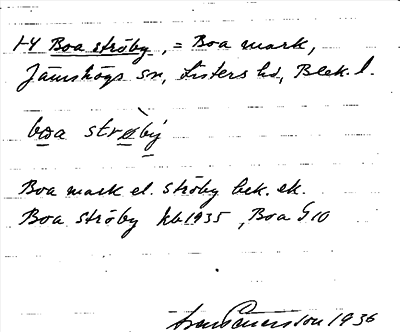 1-4 Boa ströby, = Boa mark,
Jämshögs sn, Listers hd, Blek. l.
boa strøby
Boa mark el. ströby bek. ek.
Boa ströby hb 1935, Boa G 10
1936